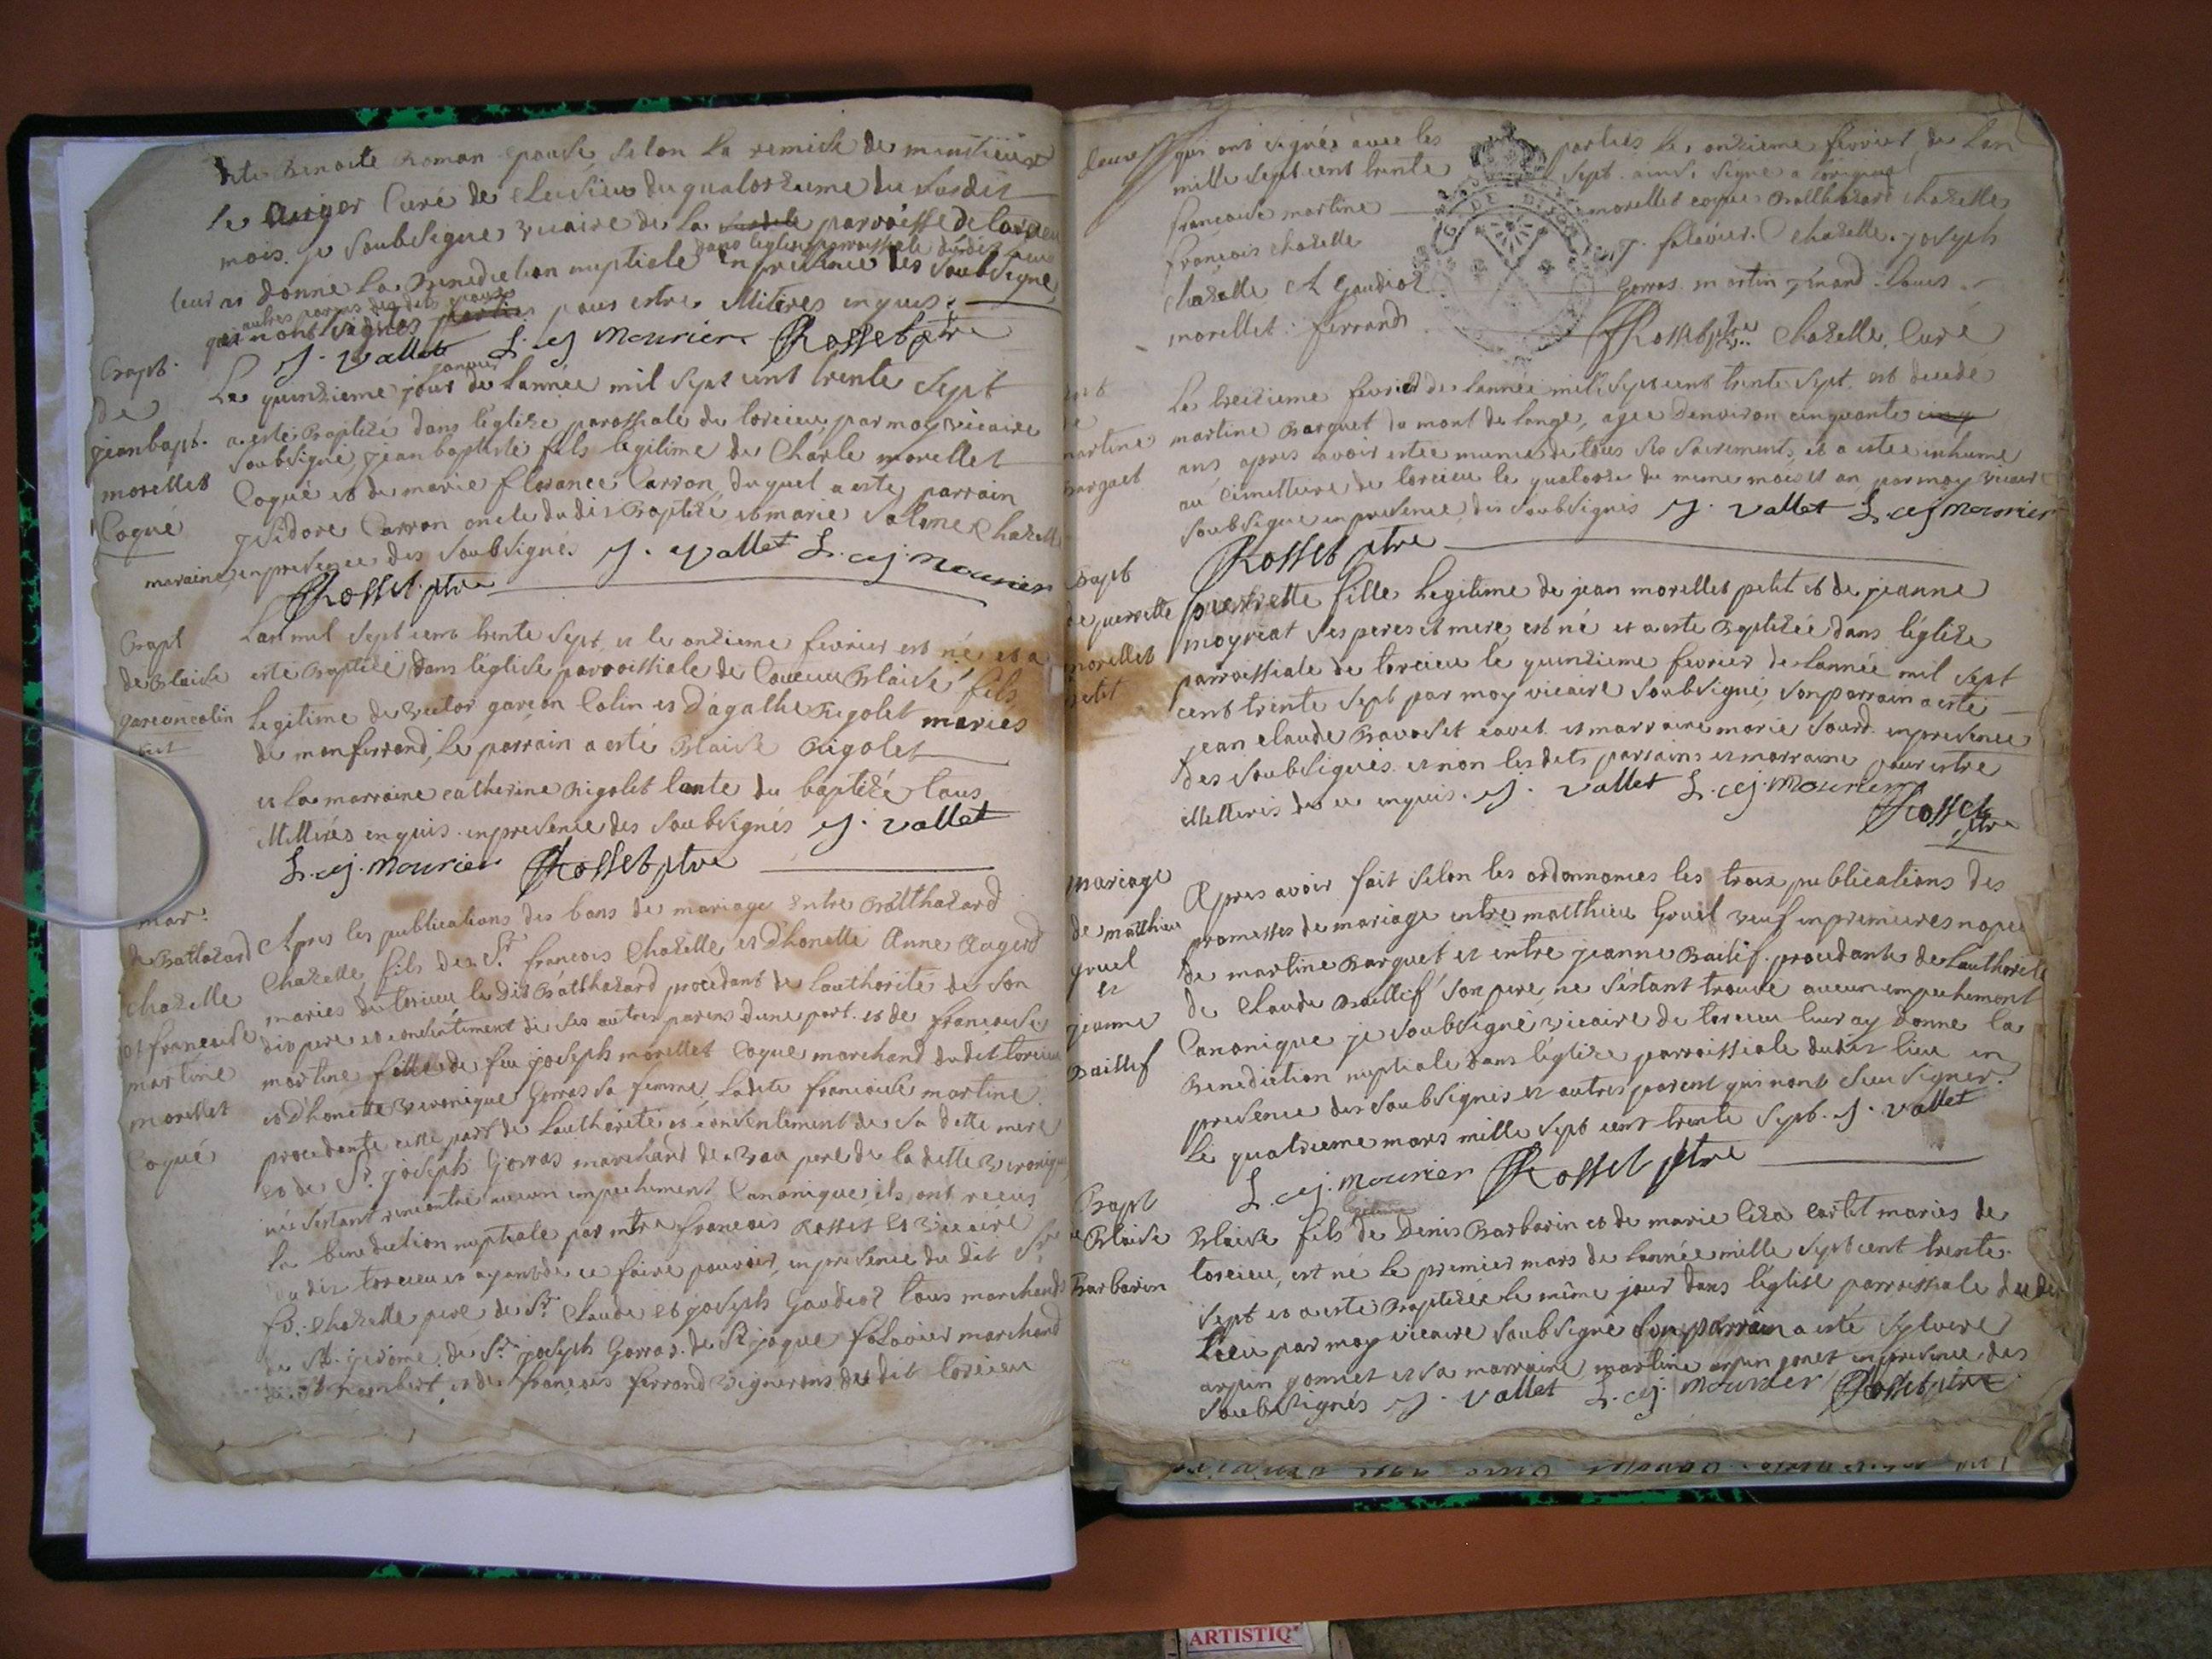 dite Benoite Roman epouse selon la remise de monsieur
le Auger Curé de du quatorzieme du susdit
mois. je soubsigne vicaire de la parroisse de torcieu
leur ai donné la Benediction nuptiale en presence des soubsigne
dans l'eglise parroissiale dudit lieu
autres parens des dits epoux
qui n'ont signés parties pour estre illitéres enquis.
J. Vallet L. cj Mourier Rosset ptre
Bapt.
de
jean bapt.
morellet
Coqué
janvier
Le quinzieme jour de Lannée mil sept cent trente sept
a esté Baptizé dans l'eglize paroissiale de torcieu par moy vicaire
soubsigné, jean baptiste fils legitime de Charle morellet
Coqué et de marie florance Carron, duquel a esté parrain
ysidore Carron oncle dudit Baptizé et marie salome Chazelle
maraine, en presence des soubsignés J. Vallet L. cj. Mourier
Rosset ptre
Bapt
de Blaise
garcon colin
L'an mil sept cent trente sept et le onzieme fevrier est né et a
esté Baptizé dans l'eglise parroissiale de torcieu Blaise fils
Legitime de victor garçon Colin et d'agathe Rigolet maries
de monferrand, Le parrain a esté Blaise Rigolet
et la marraine catherine Rigolet tante du baptizé tous
illitirés enquis. en presence des soubsignés J. Vallet
L. cj. Mourier Rosset ptre
mar.
de Battazard
chazelle
et francoise
martine
morellet
Coqué
Apres les publications des bans de mariage entre Balthazard
Chazelle fils de Sr francois Chazelle et D'honette Anne Augerd
maries de torcieu le dit Balthazard procedant de l'authorité de son
dit pere et consentiment de ses autres parens d'une part. et de francoise
martine fille de feu joseph morellet Coque marchand dudit torcieu
et D'honette veronique Gorras sa femme, Ladite francoise martine
procedante cette part de Lauthorité et consentement de sa ditte mere
et de Sr joseph Gorras marchand de Bau pere de la ditte veronique
ne s'estant rencontré aucun empechement Canonique ils ont receus
la benediction nuptiale par mtre francois Rosset vicaire
du dit torcieu et ayant de ce faire pouvoir, en presence du dit Sr
fs. chazelle pere de Sr Claude et joseph Gaudioz tous marchands
de St jerome. de Sr joseph Gorras. de Sr jaque falavier marchand
de St rambert, et de francois ferrand vignerons dudit torcieu
qui ont signés avec les parties le onzieme fevrier de Lan
mille sept cent trente sept. ainsi signé a l'original
francoise martine morellet coque Balthazard chazelle
francois chazelle J. falavier. C chazelle. joseph
chazelle Cl Gaudioz Gorras. martin
morellet. ferrand Rosset ptre Chazelle, Curé
martine
Barguet
Le treizieme fevrier de Lannée mille sept cent trente sept. est decedé
martine Barguet du mont de Lange, agée d'environ cinquante cinq
ans apres avoir estée munie de tous les sacrements, et a estée inhume
au cimettiere de torcieu le quatorze du meme mois et an, par moy vicaire
soubsigne en presence des soubsignés J. Vallet L. cj Mourier
Rosset ptre
Bapt
de pierrette
morellet
petit
pierrette fille Legitime de jean morellet petit et de jeanne
moyreat ses peres et mere, est né et a esté Baptizée dans l'églize
parroissiale de torcieu le quinzieme fevrier de Lannée mil sept
cent trente sept par moy vicaire soubsigné, son parrain a esté
jean claude Bavoset et marraine marie sourd. en presence
des soubsignés et non les dits parrains et marraine pour estre
illetteris de ce enquis. J. Vallet L. cj. Mourier
Rosset ptre
Mariage
de matthieu
gruel
et
jeanne
Baillif
Apres avoir fait selon les ordonnances les trois publications des
promesses de mariage entre matthieu Gruel veuf en premieres nopces
de martine Barguet et entre jeanne Baillif. procedante de Lauthorité
de Claude Baillif son pere, ne s'estant trouvé aucun empechement
Canonique je soubsigné vicaire de torcieu leur ay donné la
Benediction nuptiale dans l'églize parroissiale dudit lieu en
presence des soubsignés et autres parent qui n'ont sceu signer.
Le quatrieme mars mille sept cent trente sept. J. Vallet
L. cj. Mourier Rosset ptre
Bapt
Blaise
Barbarin
legitime
Blaise fils de Denis Barbarin et de marie maries de
torcieu, est né Le premier mars de Lannée mille sept cent trente
sept et a esté Baptizée le même jour dans l'église parroissiale dudit
Lieu par moy vicaire soubsigné son parrain a esté sylvere
arpin gonnet et sa marraine martine arpin gonet en presence des
soubsignés J. Vallet L. cj. Mourier Rosset ptre
ARTISTIQ